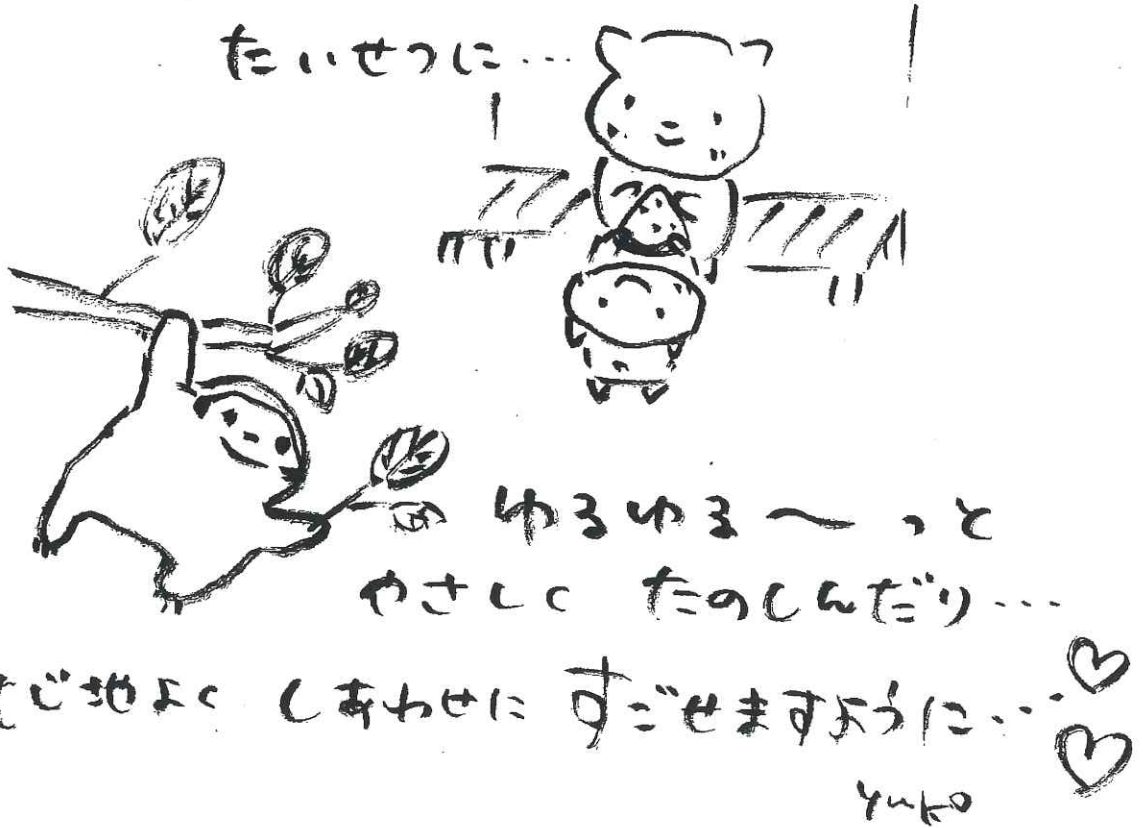 たいせつに…
ゆるゆる〜っと
やさしく たのしんだり…
地よく しあわせに すごせますように…
yuko